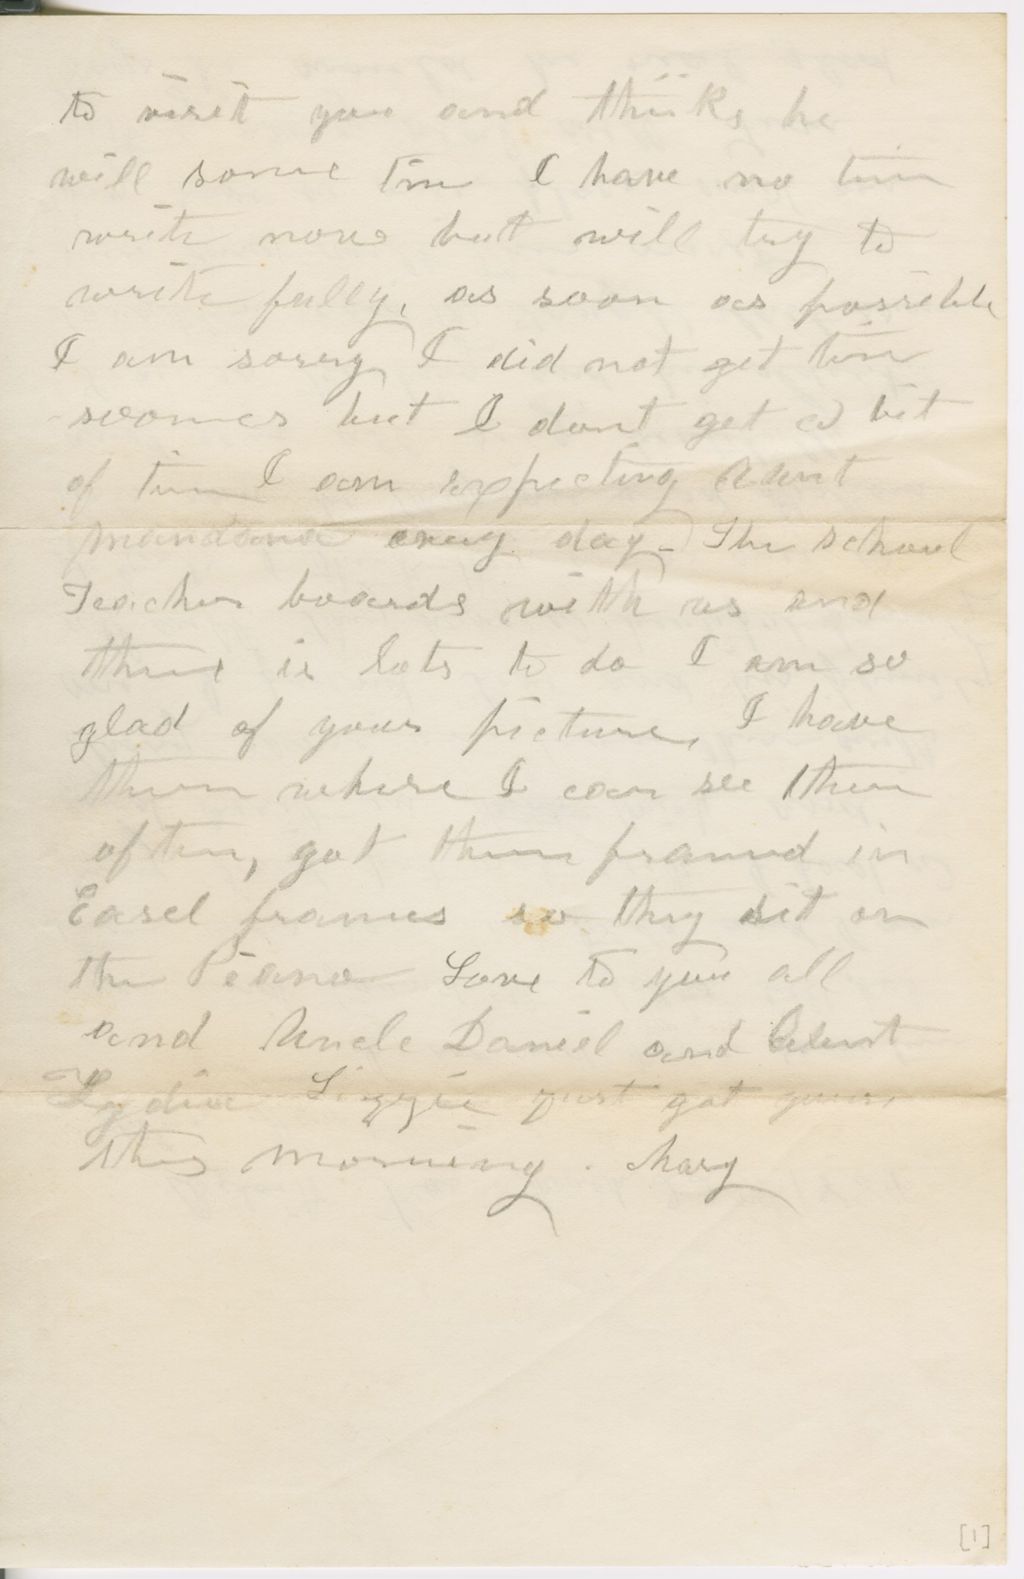 to visit you and thinks he
will some time I have no time
write now but will try to
write fully, as soon as possible
I am sorry I did not get time
sooner but I dont get a bit
of time I am expecting Aunt
Mandana every day - The school
Teacher boards with us and
there is lots to do I am so
glad of your picture, I have
them where I can see them
often, got them framed in
Easel frames so they sit on
the Piano Love to you all
and Uncle Daniel and Aunt
Lydia Lizzie just got yours,
this morning. Mary
[1]